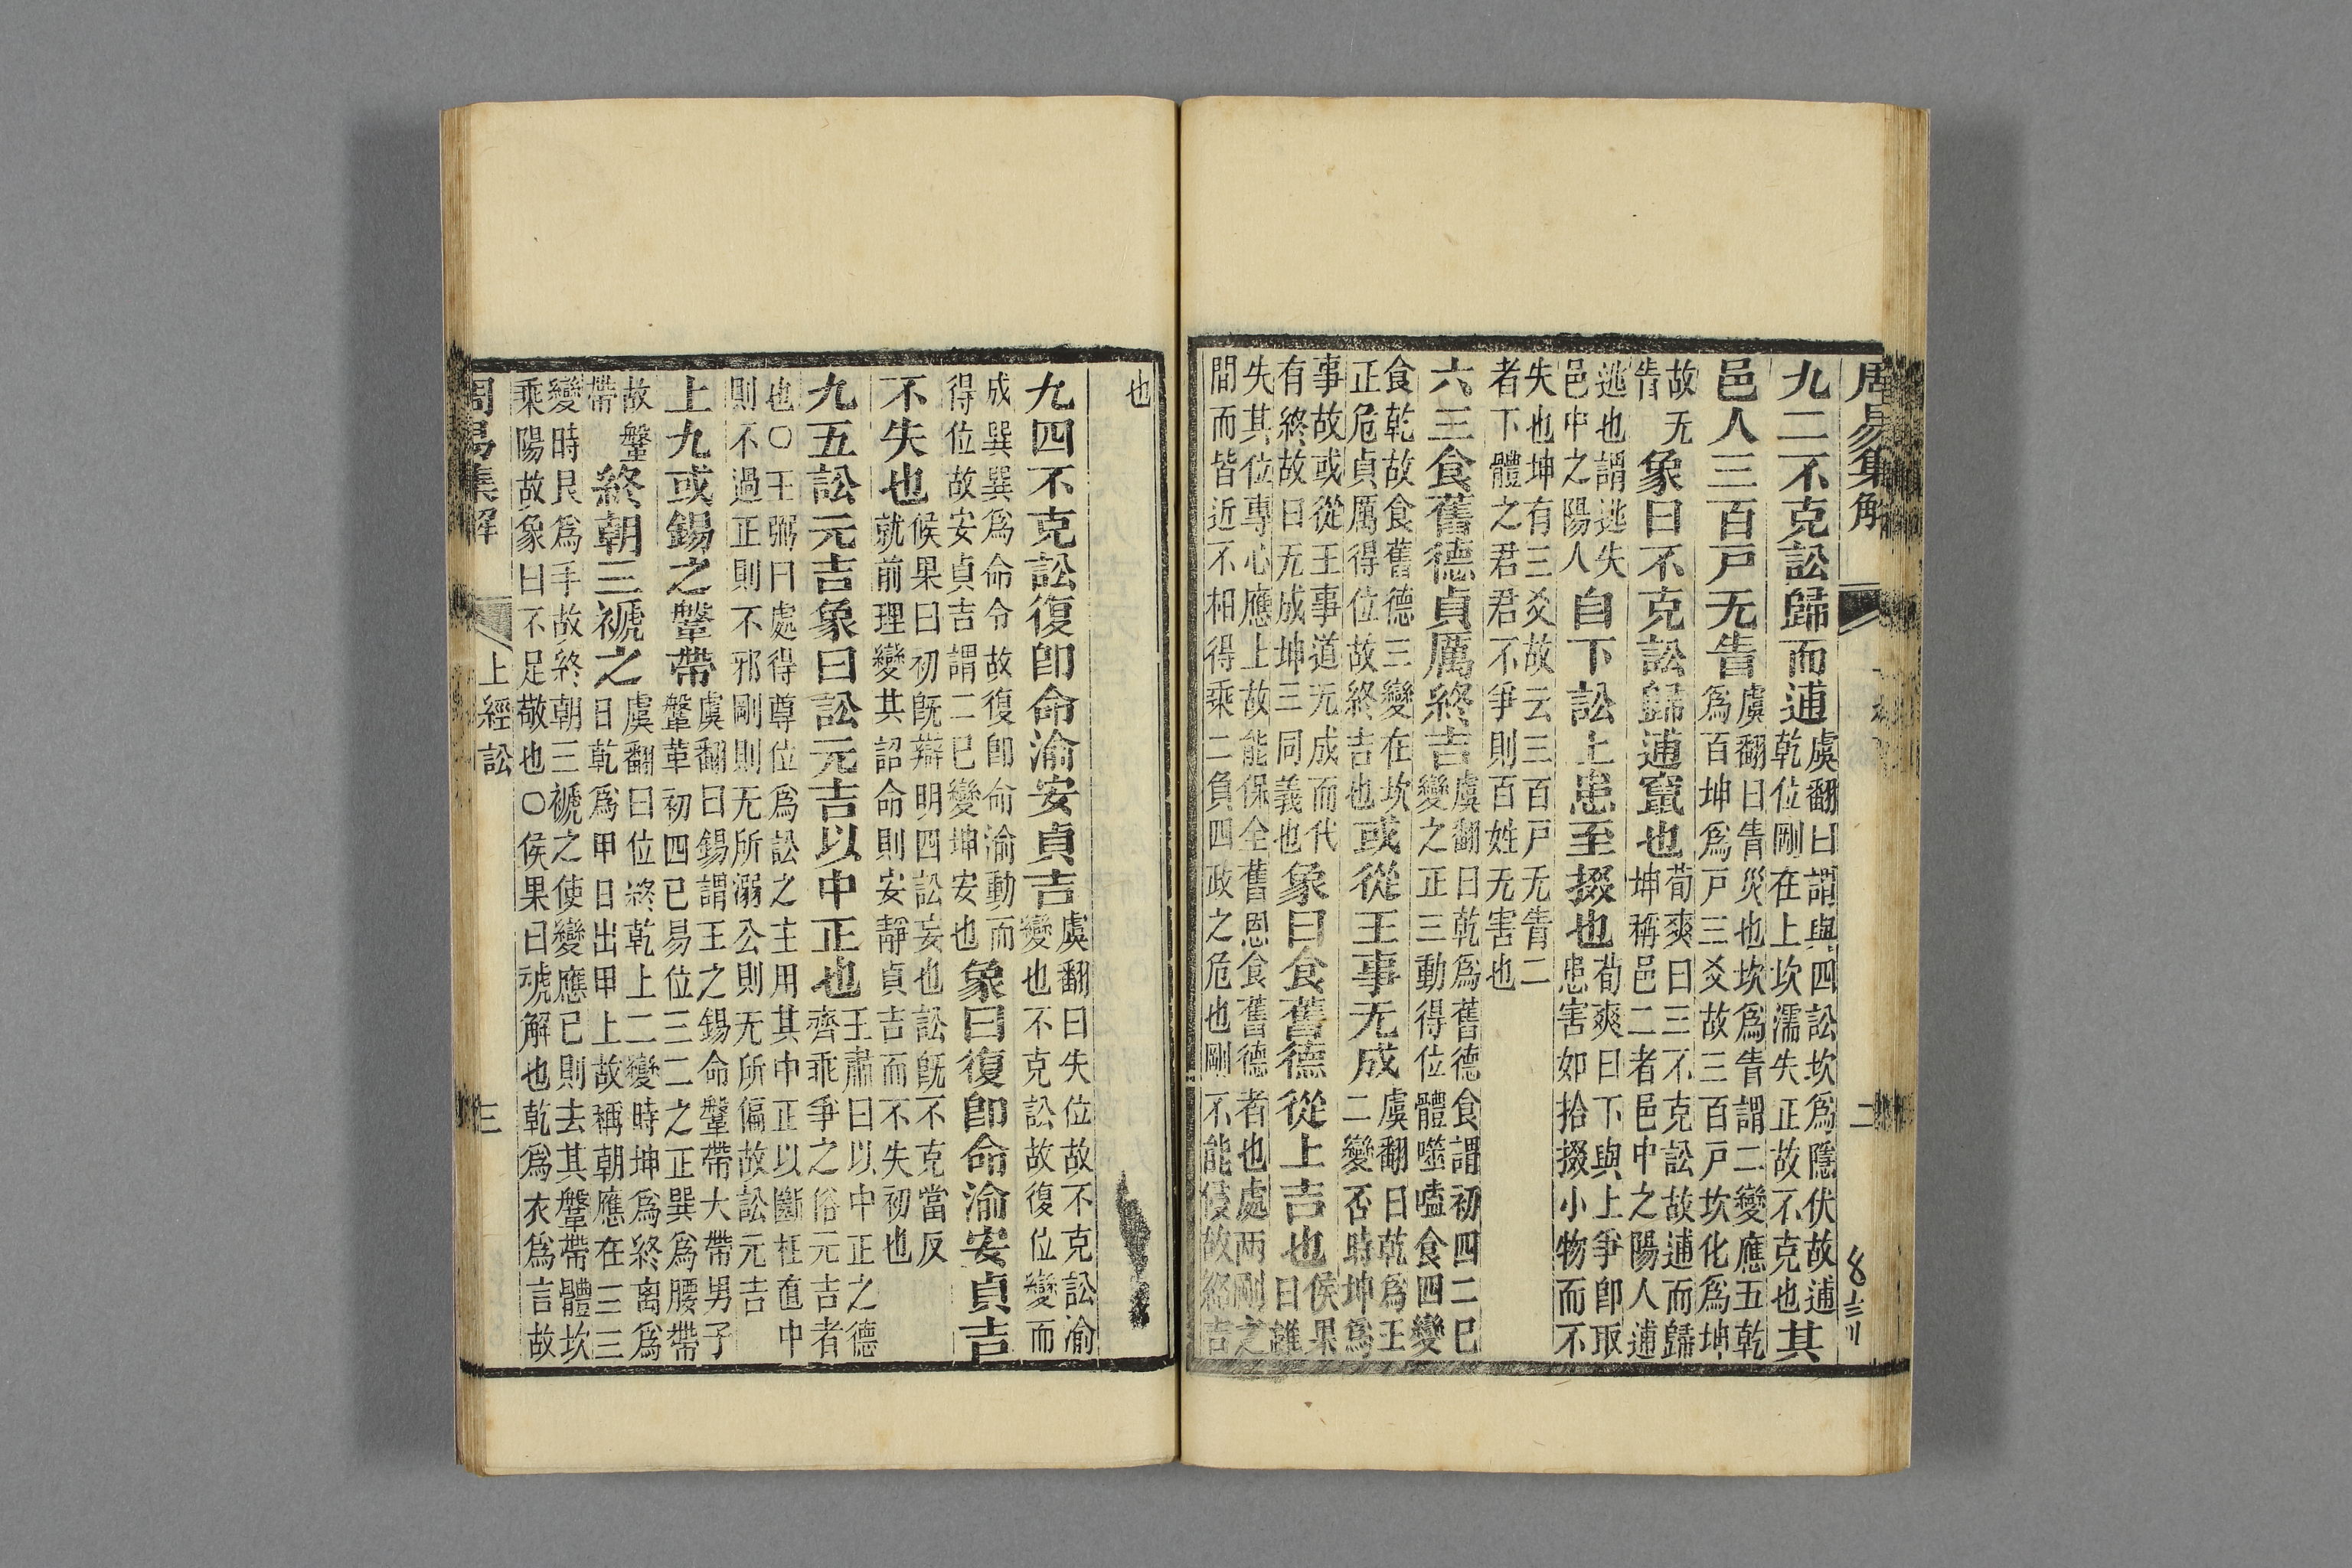 周易集解 二
九二不克訟歸而逋虞翻曰謂與四訟坎爲隱伏故逋乾位剛在上坎濡失正故不克也其
邑人三百戸无眚虞翻曰眚災也坎爲眚謂二變應五乾爲百坤爲戸三爻故三百戸坎化爲坤
故无眚象曰不克訟歸逋竄也荀爽曰三不克訟故逋而歸坤稱邑二者邑中之陽人逋
逃也謂逃失邑中之陽人自下訟上患至掇也荀爽曰下與上爭即取患害如拾掇小物而不
失也坤有三爻故云三百戸无眚二者下體之君君不爭則百姓无害也
六三食舊德貞厲終吉虞翻曰乾爲舊德食謂初四二已變之正三動得位體噬嗑食四變
食乾故食舊德三變在坎正危貞厲得位故終吉也或從王事无成虞翻曰乾爲王二變否時坤爲
事故或從王事道无成而代有終故曰无成坤三同義也象曰食舊德從上吉也侯果曰雖
失其位專心應上故能保全舊恩食舊德者也處兩剛之間而皆近不相得乘二負四政之危也剛不能侵故終吉
也
九四不克訟復卽命渝安貞吉虞翻曰失位故不克訟渝變也不克訟故復位變而
成巽巽爲命令故復卽命渝動而得位故安貞吉謂二已變坤安也象曰復卽命渝安貞吉
不失也候果曰初旣辯明四訟妄也訟旣不克當反就前理變其詔命則安靜貞吉而不失初也
九五訟元吉象曰訟元吉以中正也王肅曰以中正之德齊乖爭之俗元吉者
也○王弼曰處得尊位爲訟之主用其中正以斷枉直中則不過正則不邪剛則无所溺公則无所偏故訟元吉
上九或錫之鞶帶虞翻曰錫謂王之錫命鞶帶大帶男子鞶革初四已易位三二之正巽爲腰帶
故鞶帶終朝三褫之虞翻曰位終乾上二變時坤爲終离爲日乾爲甲日出甲上故稱朝應在三三
變時艮爲手故終朝三褫之使變應已則去其鞶帶體坎乘陽故象曰不足敬也○侯果曰褫解也乾爲衣爲言故
周易集解 上經訟 三